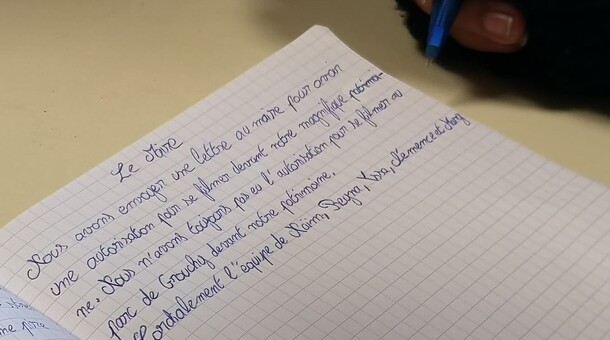 Le Maire
Nous avons envoyer une lettre au maire pour avoir
une autorisation pour se filmer devant notre magnifique patrimoi-
ne. Nous n'avons toujours pas eu l'autorisation pour se filmer au
parc de Grouchy devant notre patrimoine.
Cordialement l'équipe de Naïm, Reyna, Issa, Clemence et